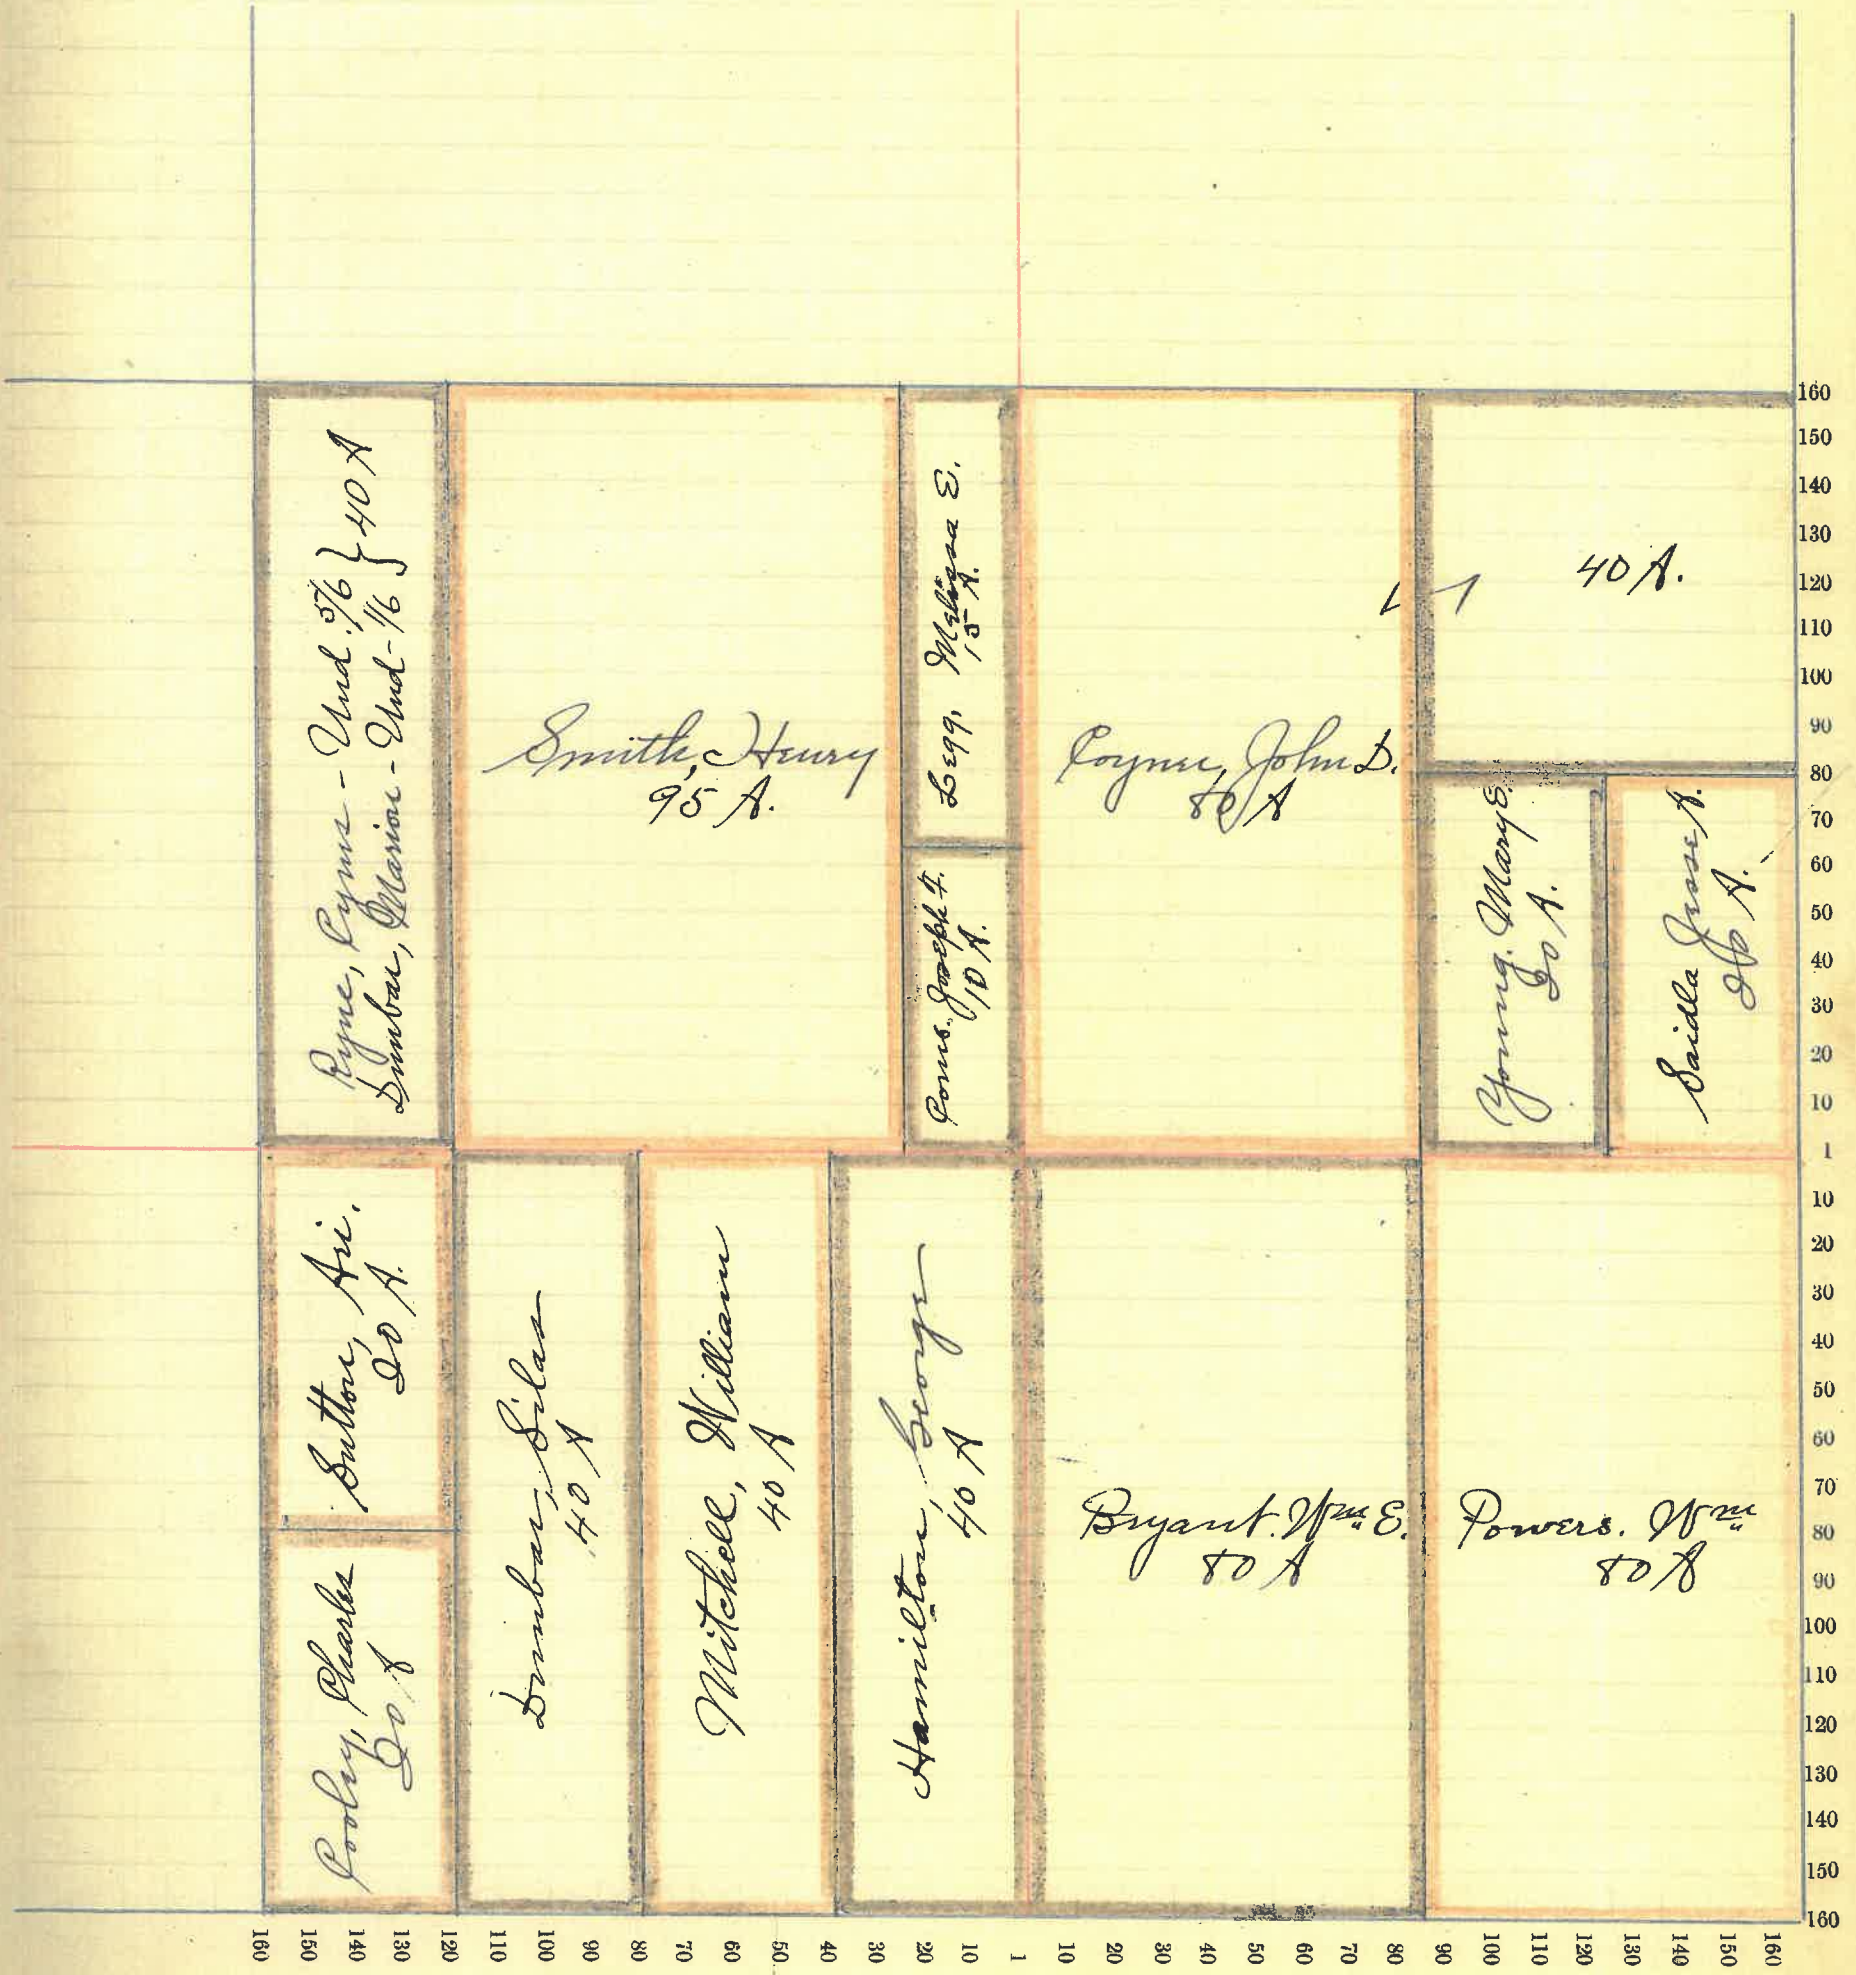 Ryne, Cyrus - Und. 5/6 } 40 A
Dunbar, Marion - Und - 1/6
Smith, Henry
95 A.
Legg, Melissa E.
15 A.
Joseph F.
10 A.
Coyner, John D.
80 A
40 A.
Young. Mary E.
20 A.
Saidla Jesse A.
20 A.
Sutton, Ari.
20 A.
Cooley, Charles
20 A
Dunbar, Silas
40 A
Mitchell, William
40 A
Hamilton, George
40 A
Bryant. Wm E.
80 A
Powers. Wm
80 A
160
150
140
130
120
110
100
90
80
70
60
50
40
30
20
10
1
10
20
30
40
50
60
70
80
90
100
110
120
130
140
150
160
160 150 140 130 120 110 100 90 80 70 60 50 40 30 20 10 1 10 20 30 40 50 60 70 80 90 100 110 120 130 140 150 160